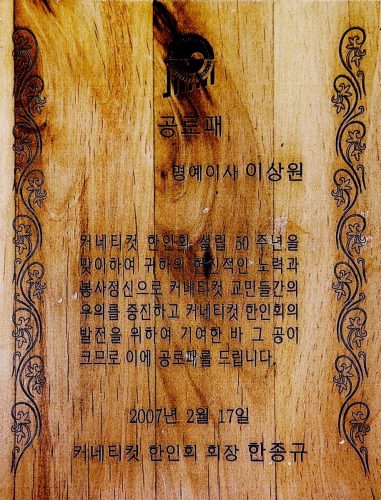 공로패
명예이사 이상원
커네티컷 한인회 설립 50 주년을
맞이하여 귀하의 헌신적인 노력과
봉사정신으로 커네티컷 교민들간의
우의를 증진하고 커네티컷 한인회의
발전을 위하여 기여한 바 그 공이
크므로 이에 공로패를 드립니다.
2007년 2월 17일
커네티컷 한인회 회장 한종규